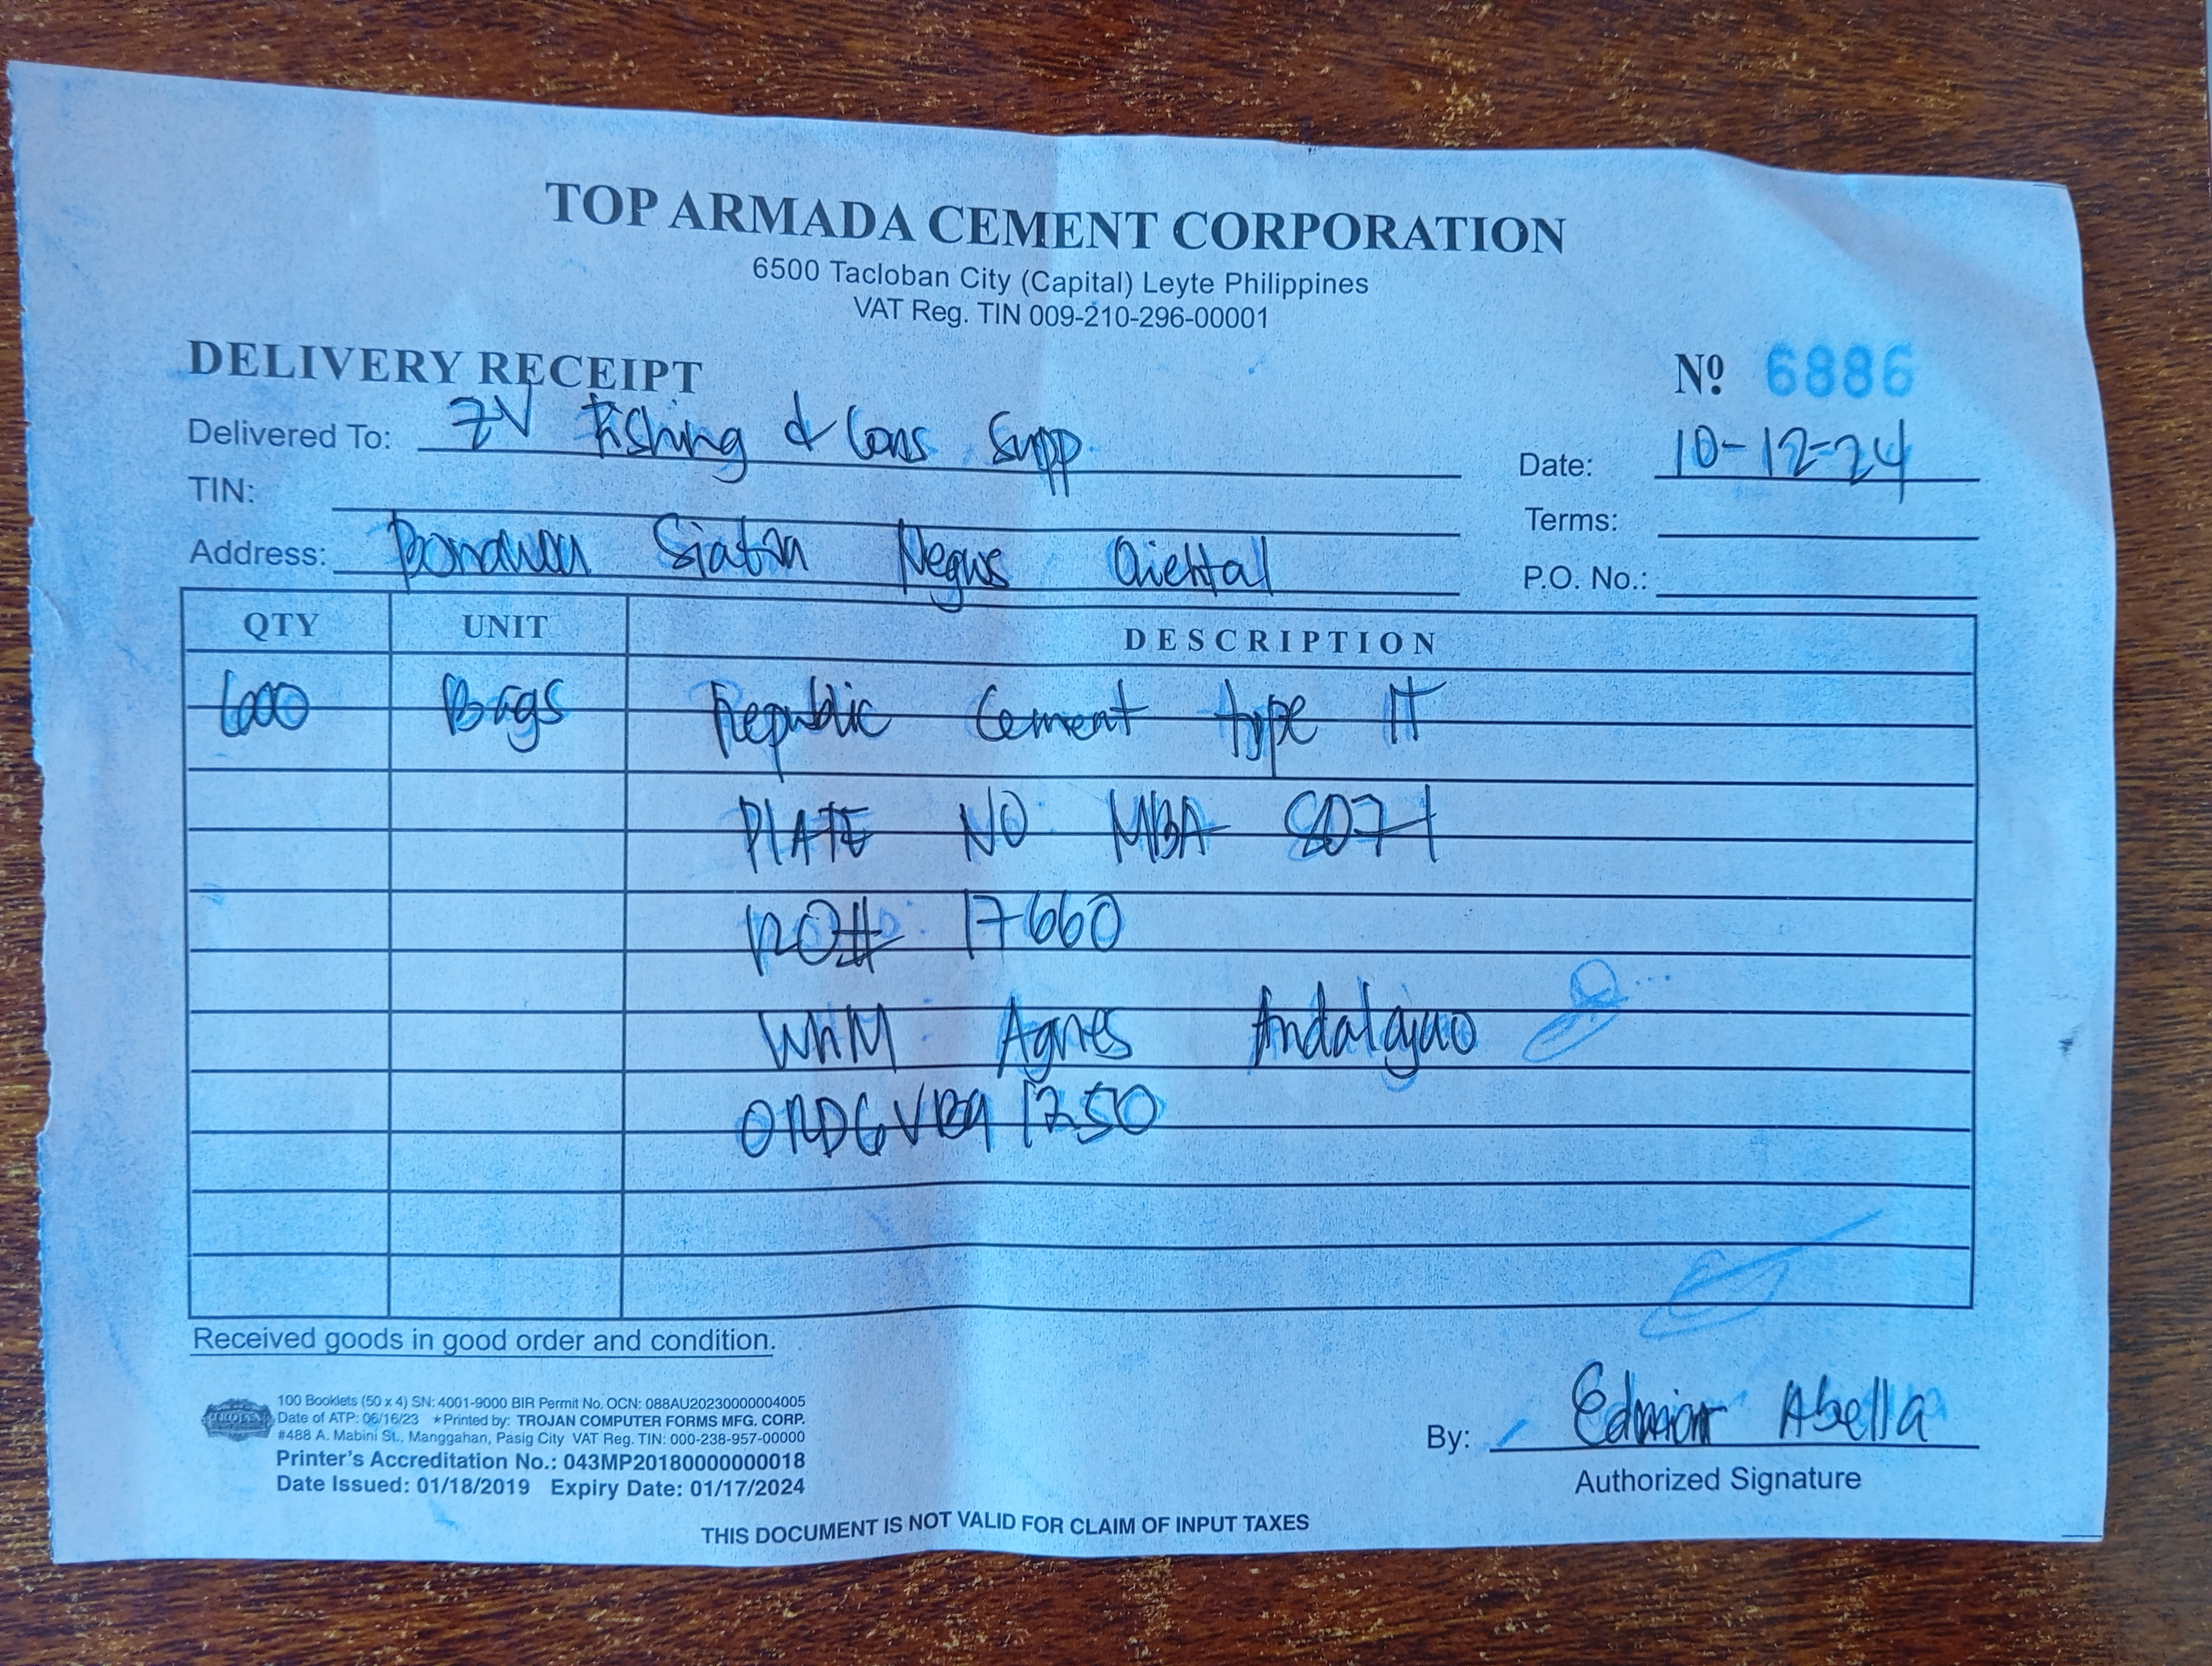 TOP ARMADA CEMENT CORPORATION
6500 Tacloban City (Capital) Leyte Philippines
VAT Reg. TIN 009-210-296-00001
DELIVERY RECEIPT
Nº 6886
Delivered To: ZV Fishing & Cons Supp
Date: 10-12-24
TIN:
Terms:
Address: Siaton Negros Oriental
P.O. No.:
QTY UNIT DESCRIPTION
600 Bags Republic Cement type IT
PLATE NO MBA 8071
RO# 17660
WHM Agnes
Received goods in good order and condition.
TROJAN
100 Booklets (50 x 4) SN: 4001-9000 BIR Permit No. OCN: 088AU20230000004005
Date of ATP: 06/16/23 ★Printed by: TROJAN COMPUTER FORMS MFG. CORP.
#488 A. Mabini St., Manggahan, Pasig City VAT Reg. TIN: 000-238-957-00000
Printer's Accreditation No.: 043MP20180000000018
Date Issued: 01/18/2019 Expiry Date: 01/17/2024
By: Abella
Authorized Signature
THIS DOCUMENT IS NOT VALID FOR CLAIM OF INPUT TAXES